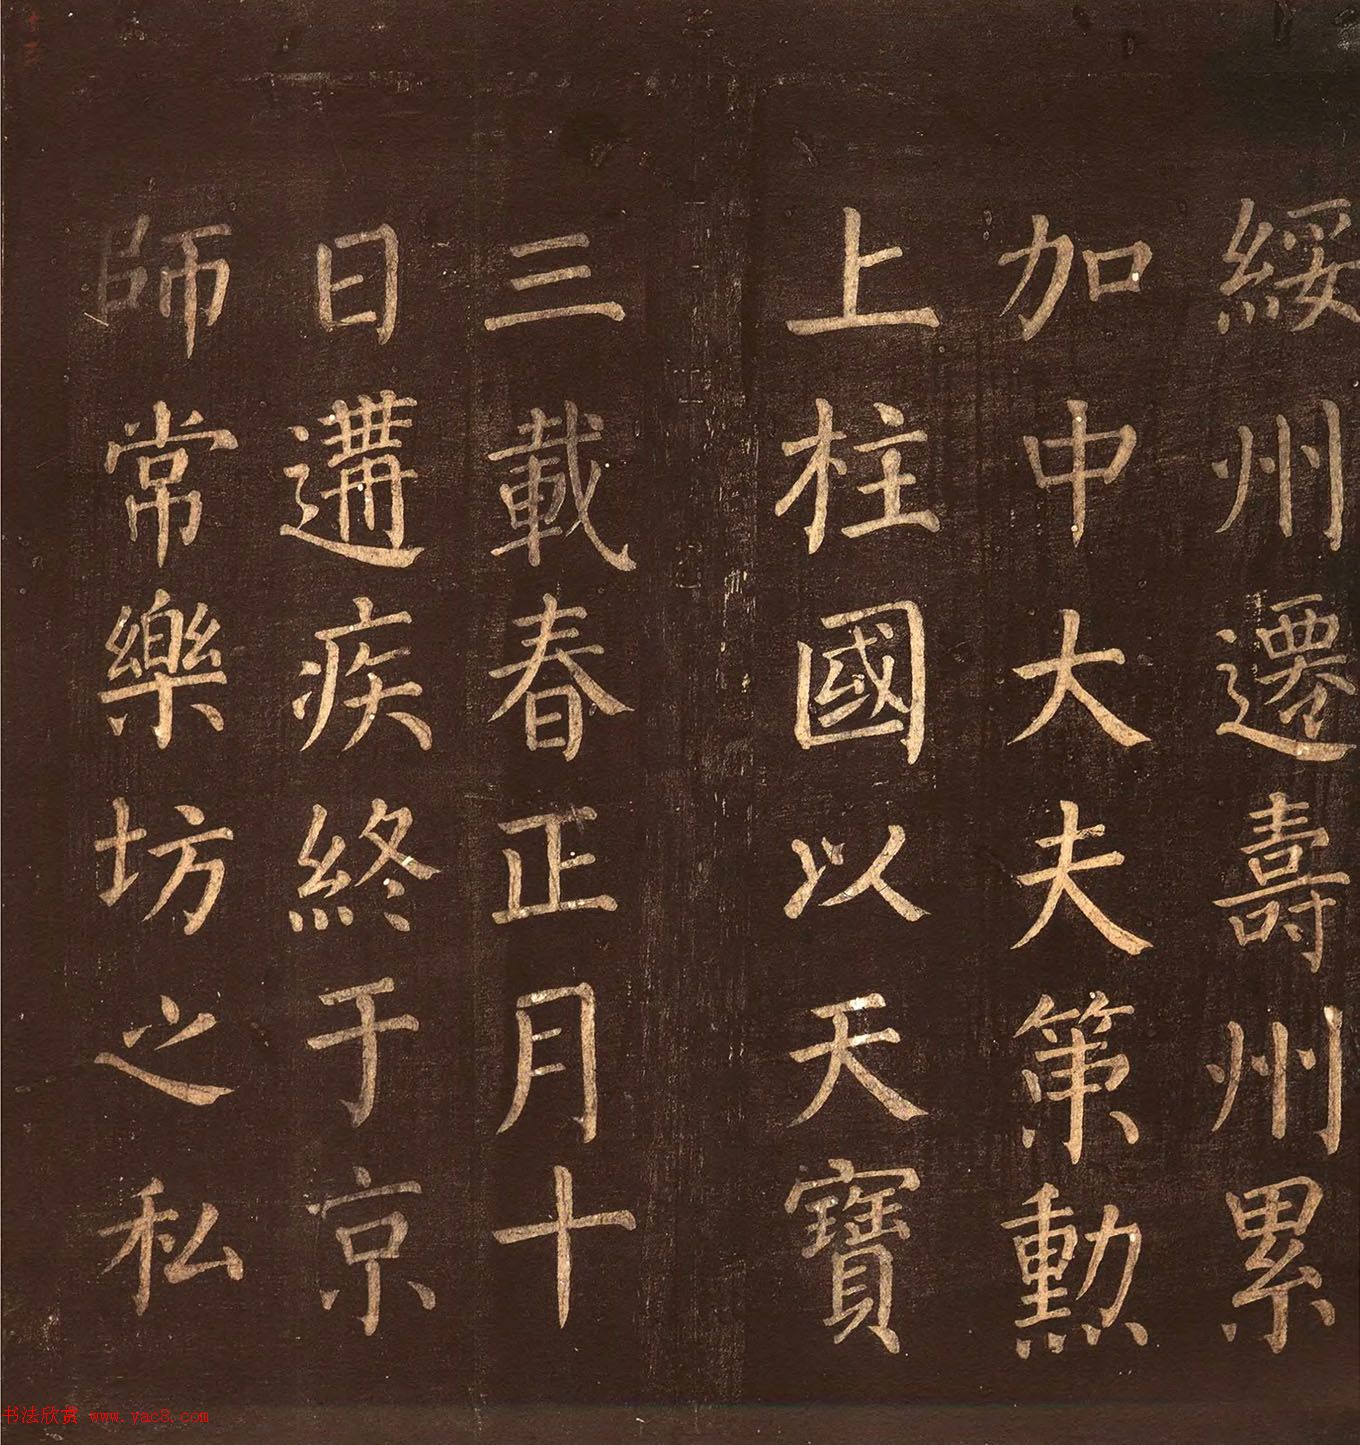 綏州遷壽州累
加中大夫第勳
上柱國以天寶
三載春正月十
日遘疾終于京
師常樂坊之私
书法欣赏 www.yac8.com